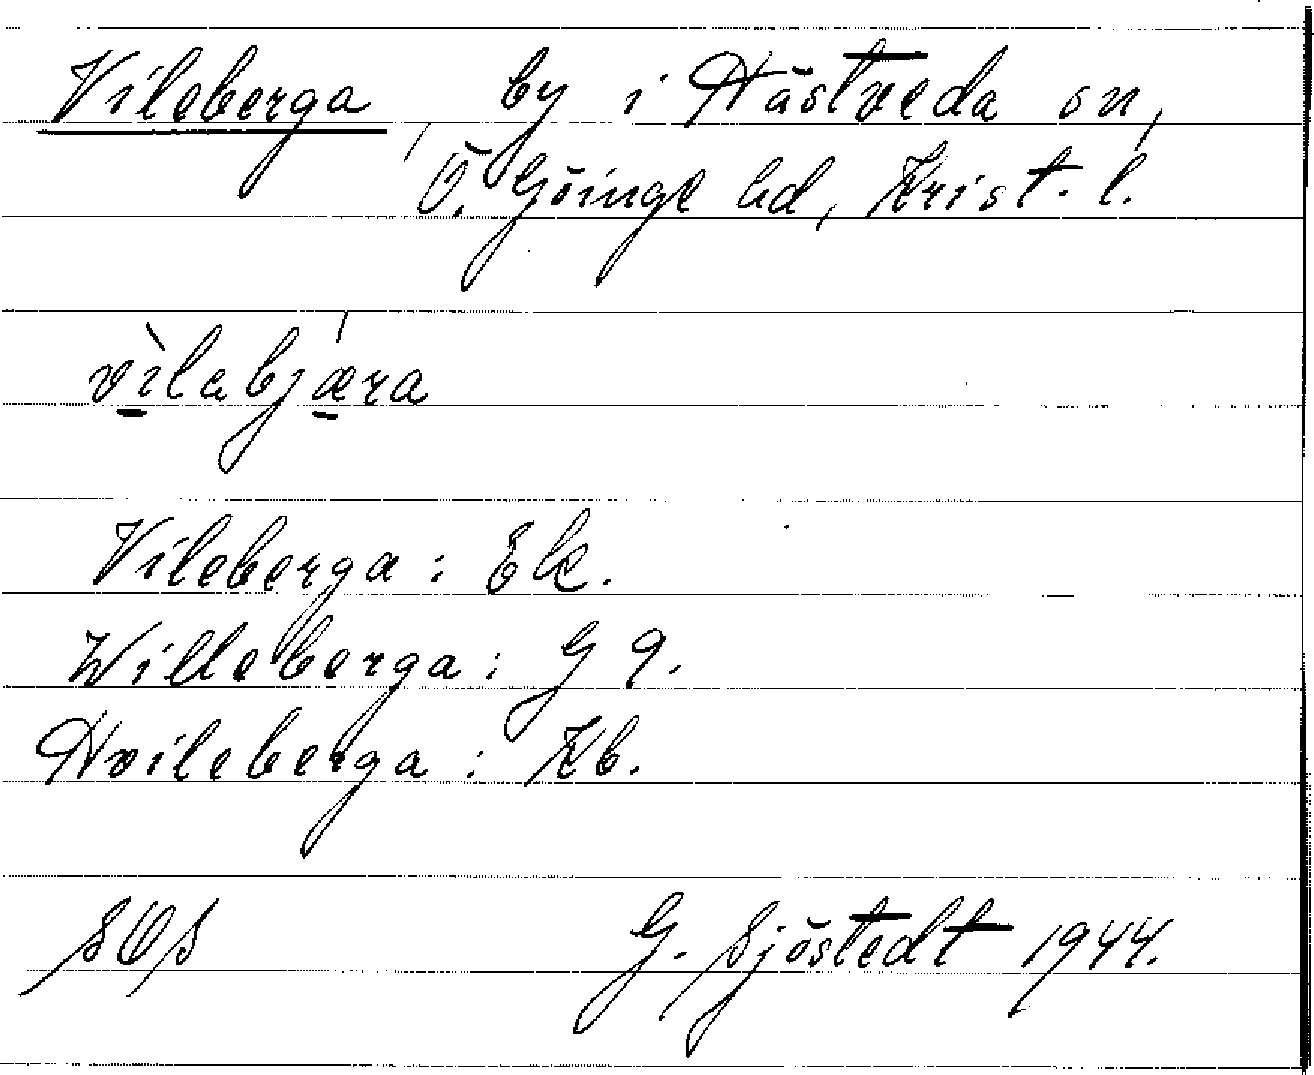 Vileberga, by i Hästveda sn,
Ö. Göinge hd, Krist. l.
vìlabjǽra
Vileberga: Ek.
Willeberga: G 9.
Hvileberga: Kb.
SOS G. Sjöstedt 1944.